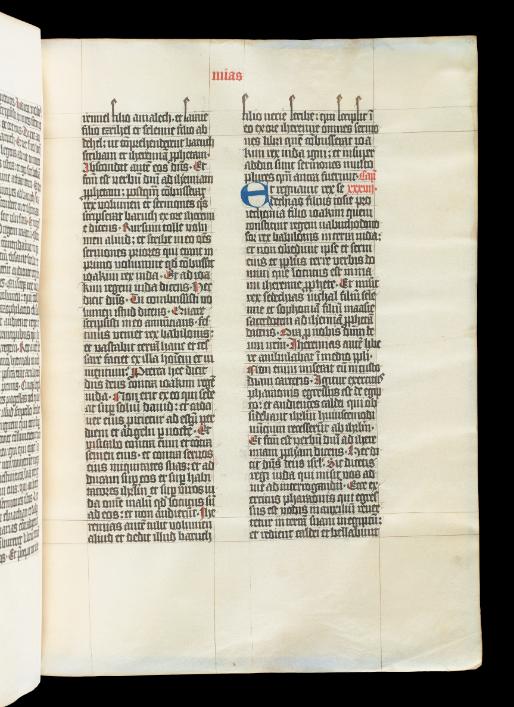 mias
remiel filio amalech · et saraie
filio ezrihel et selemie filio ab
dehel: ut cōprehenderent baruch
scribam et iheremiā ꝓphetam·
Abscondit autē eos dn̄s· Et
fcm̄ est verbū dn̄i ad iheremiam
ꝓphetam: postqm̄ cōbusserat
rex volumen et sermones q̄s
scripserat baruch ex ore iheremie
dicens· Rursum tolle volu
men aliud: et scribe in eo oēs
sermones priores qui erant in
primo volumine qd̄ cōbussit
ioakim rex iuda· Et ad ioa
kim regem iuda dices· Hec
dicit dn̄s· Tu combussisti vo
lumen illud dicens· Quare
scripsisti in eo annuncians· fes
tinus veniet rex babilonis:
et vastabit terrā hanc et ces
sare faciet ex illa hoīem et iu
mentum· Propterea hec dicit
dn̄s contra ioakim regē
iuda· Non erit ex eo qui sede
at sup soliū dauid: et cada
uer eius proicietur ad estū per
diem et ad gelu p noctē· Et
visitabo contra eum et contra
semen eius· et contra seruos
eius iniquitates suas: et ad
ducam sup eos et sup habi
tatores ihrl̄m et sup viros iu
da omē malū qd̄ locutus sū
ad eos: et non audierūt· Ihe
remias autē tulit volumen
aliud et dedit illud baruch
filio nerie scribe: qui scripsit ī
eo ex ore iheremie omnes sermo
nes libri quē cōbusserat ioa
kim rex iuda igni: et insuper
additi sunt sermones multo
plures qm̄ antea fuerūt· Cap̄
Et regnauit rex se xxxvii·
dechias filius iosie pro
iechonia filio ioakim quem
constituit regem nabuchodono
sor rex babilonis in terra iuda:
et non obediuit ipse et serui
eius et ppl̄us terre verbis do
mini que locutus est in manu
iheremie ꝓphete· Et misit
rex sedechias iuchal filiū sele
mie et sophoniā filiū maasie
sacerdotem ad iheremiā ꝓphetā
dicens· Ora p nobis dnm̄ deū
nrm̄· Iheremias autē libe
re ambulabat ī medio ppl̄i·
Non enim miserāt eū in custo
diam carceris· Igitur exercitus
pharaonis egressus est de egip
to: et audientes caldei qui ob
sidebant ihrl̄m huiuscemodi
nūcium recesserūt ab ihrl̄m·
Et fcm̄ est verbū dn̄i ad ihere
miam ꝓphetam dicens· Hec di
cit dn̄s deus isrl̄· Sic dicetis
regi iuda qui misit vos ad
me ad interrogandū· Ecce ex
ercitus pharaonis qui egres
sus est vobis in auxiliū reuer
tetur in terrā suam in egiptū:
et redient caldei et bellabunt